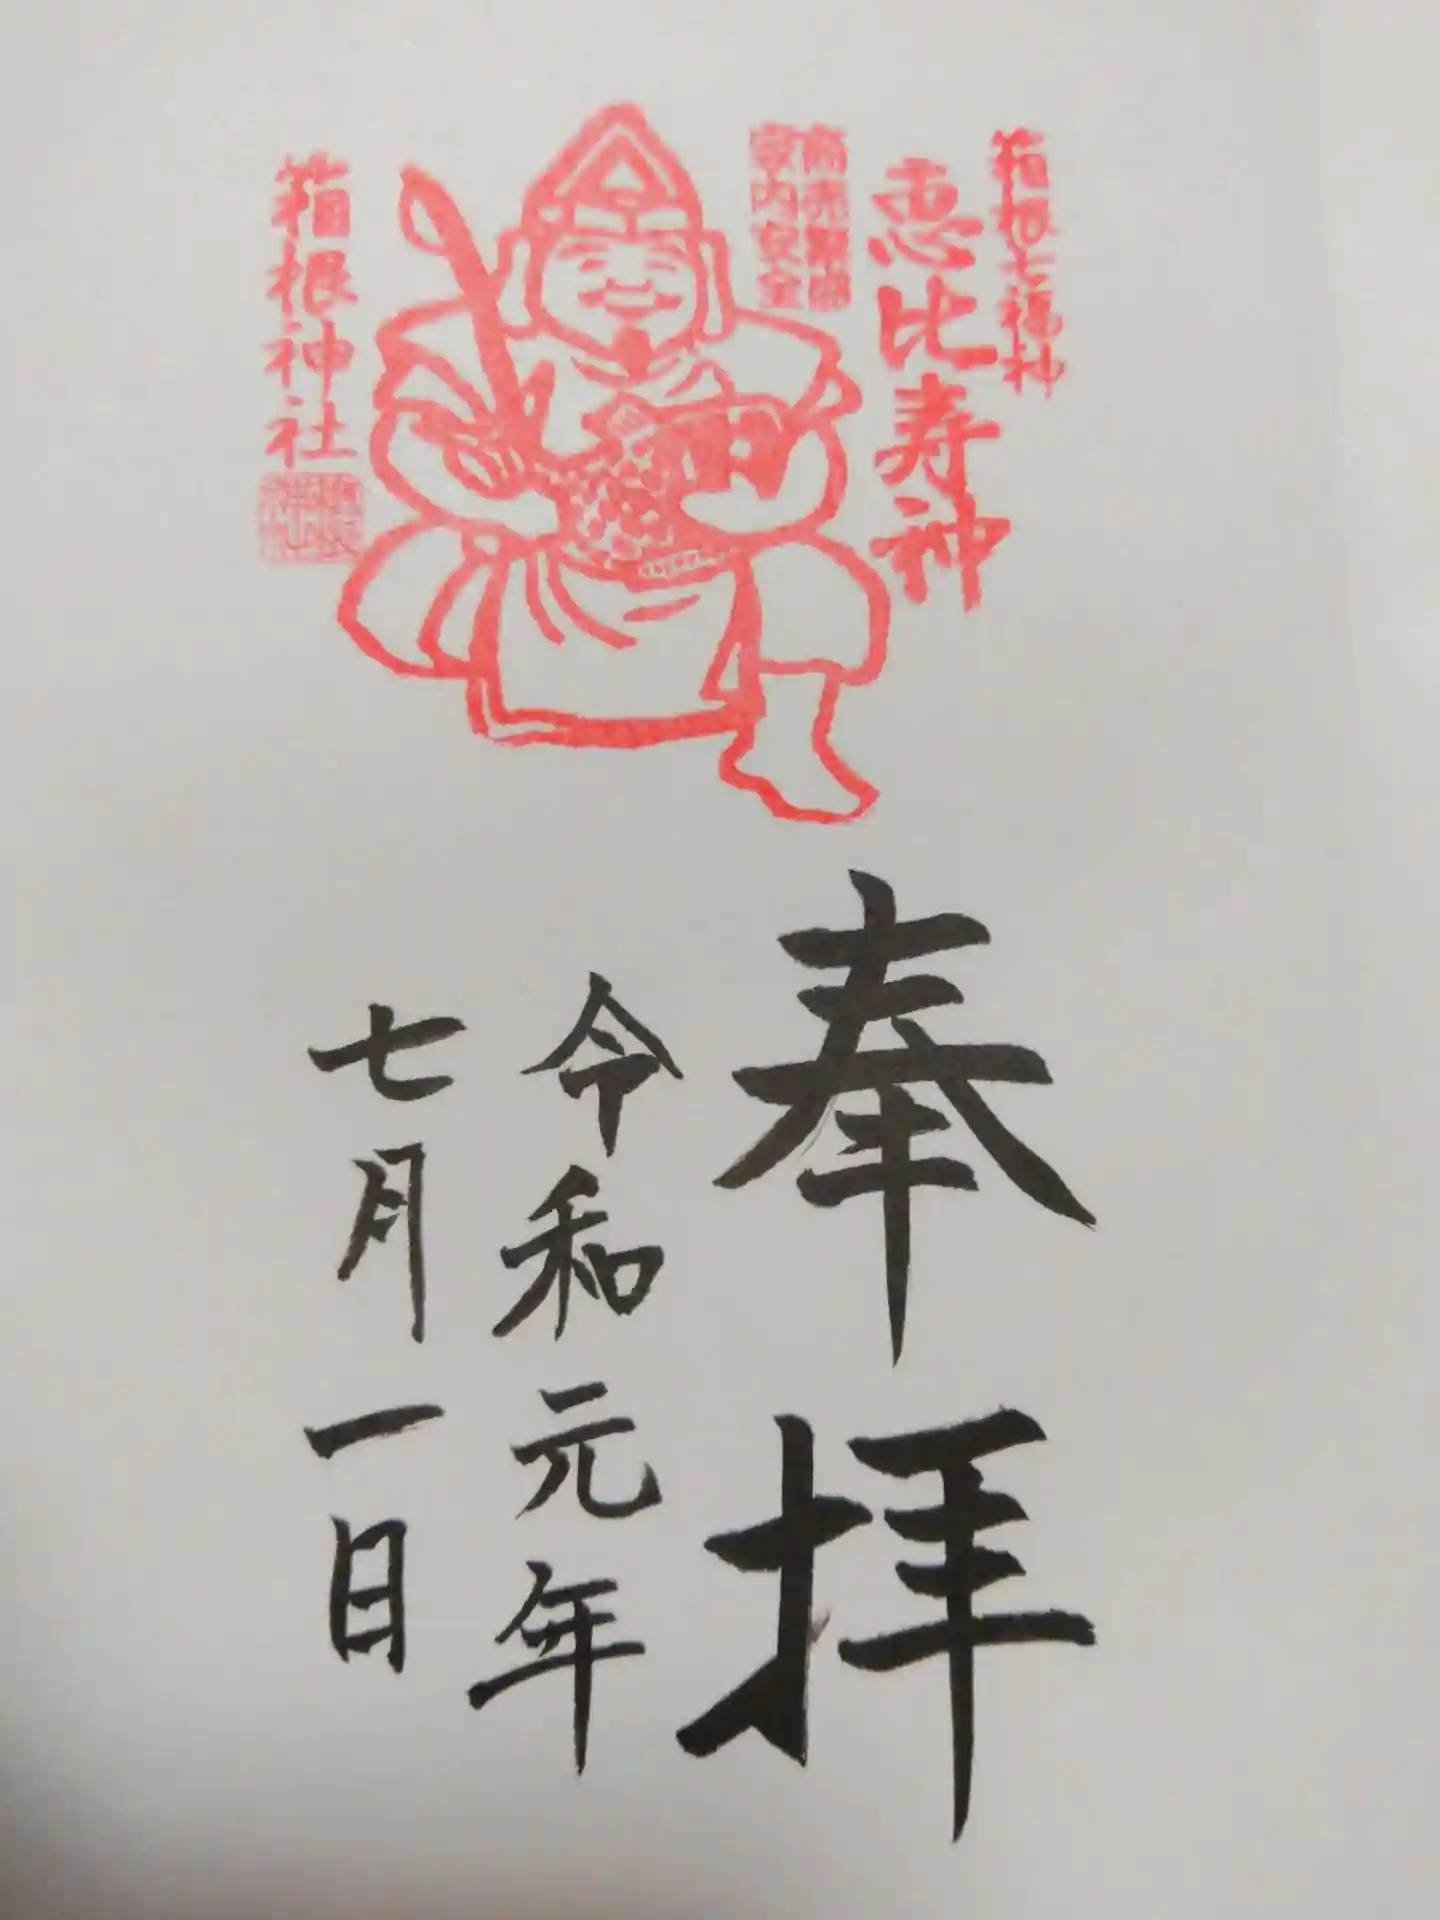 箱根七福神
恵比寿神
商売繁昌
家内安全
箱根神社
奉拝
令和元年
七月一日